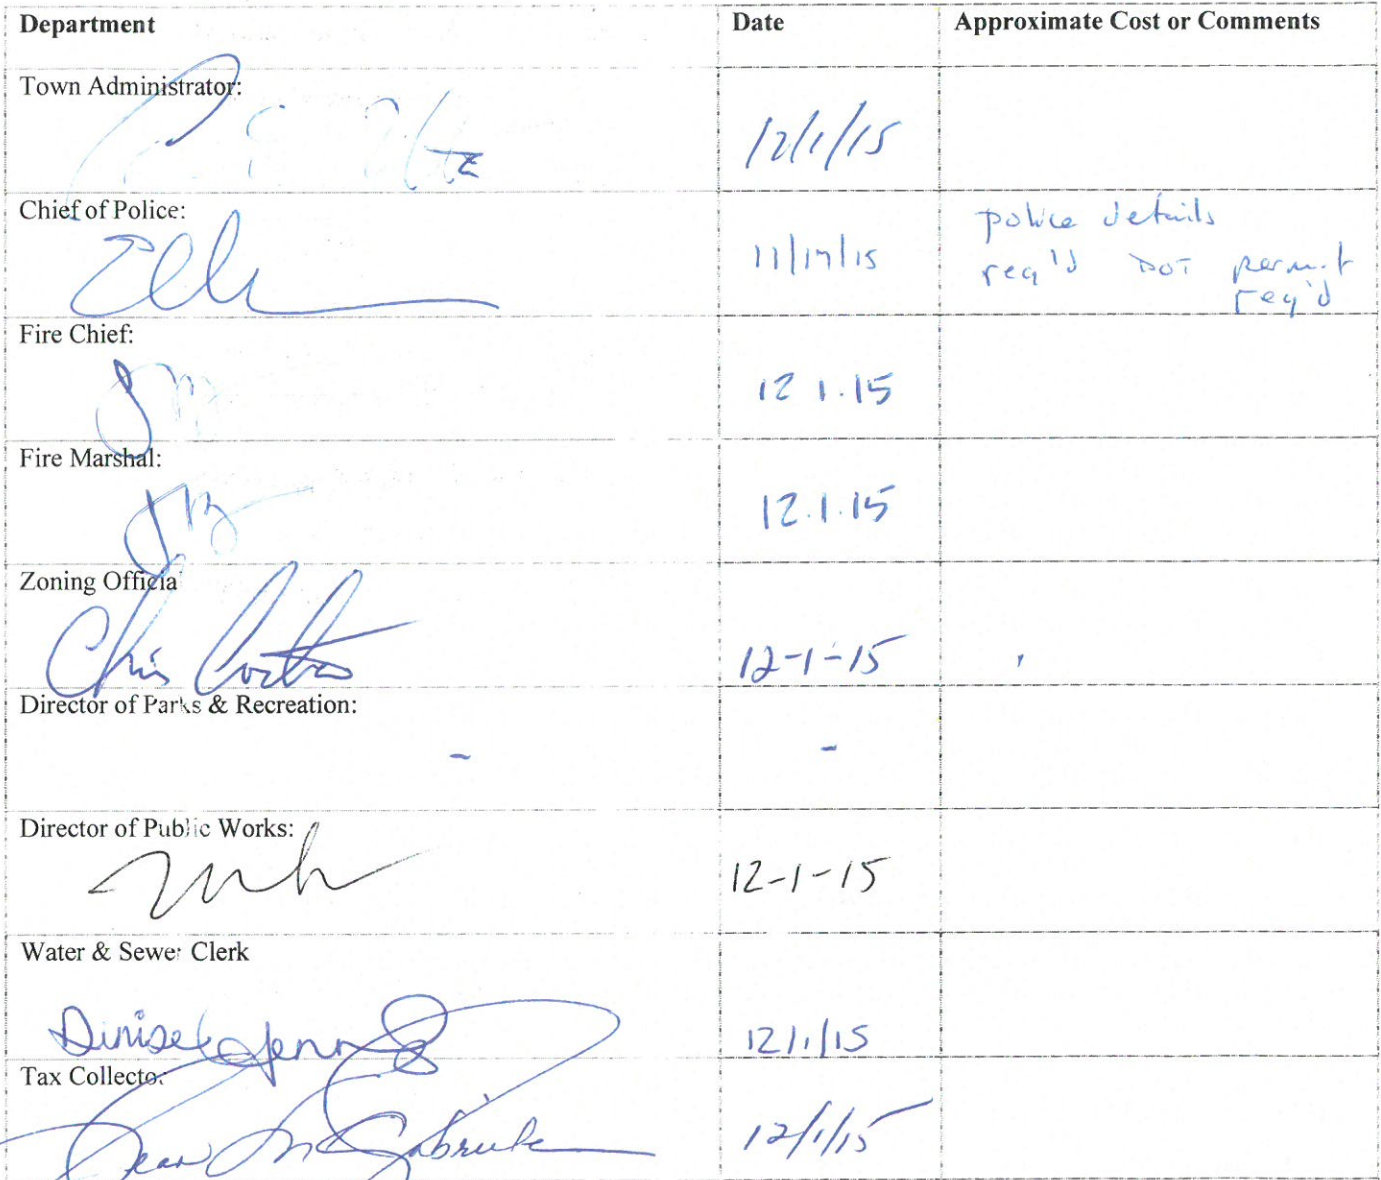 Department Date Approximate Cost or Comments
Town Administrator:
12/1/15
Chief of Police:
11/17/15 police details
req'd DOT permit
req'd
Fire Chief:
12.1.15
Fire Marshal:
12.1.15
Zoning Officia
Chris
12-1-15
Director of Parks & Recreation:
- -
Director of Public Works:
12-1-15
Water & Sewer Clerk
12/1/15
Tax Collector
12/1/15